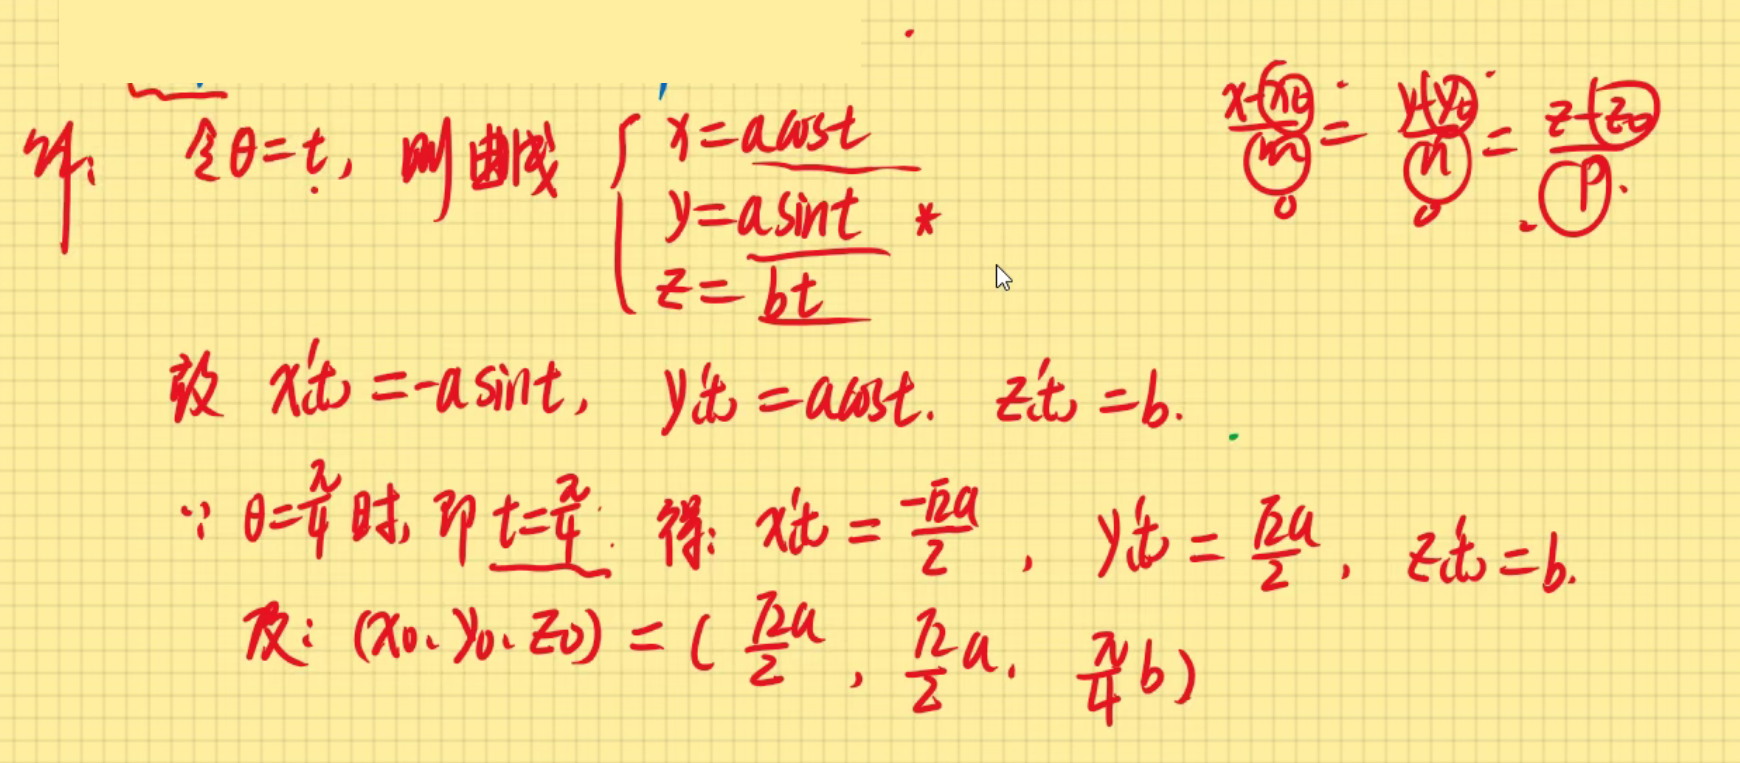 解: 令θ=t, 则曲线 { x=acost
y=asint *
z=bt
(x-x0)/m = (y-y0)/n = (z-z0)/p
故 x'(t)=-asint, y'(t)=acost. z'(t)=b.
∵ θ=π/4时, 即t=π/4. 得: x'(t)=-√2a/2, y'(t)=√2a/2, z'(t)=b.
及: (x0、y0、z0)=(√2a/2, √2/2 a, π/4 b)